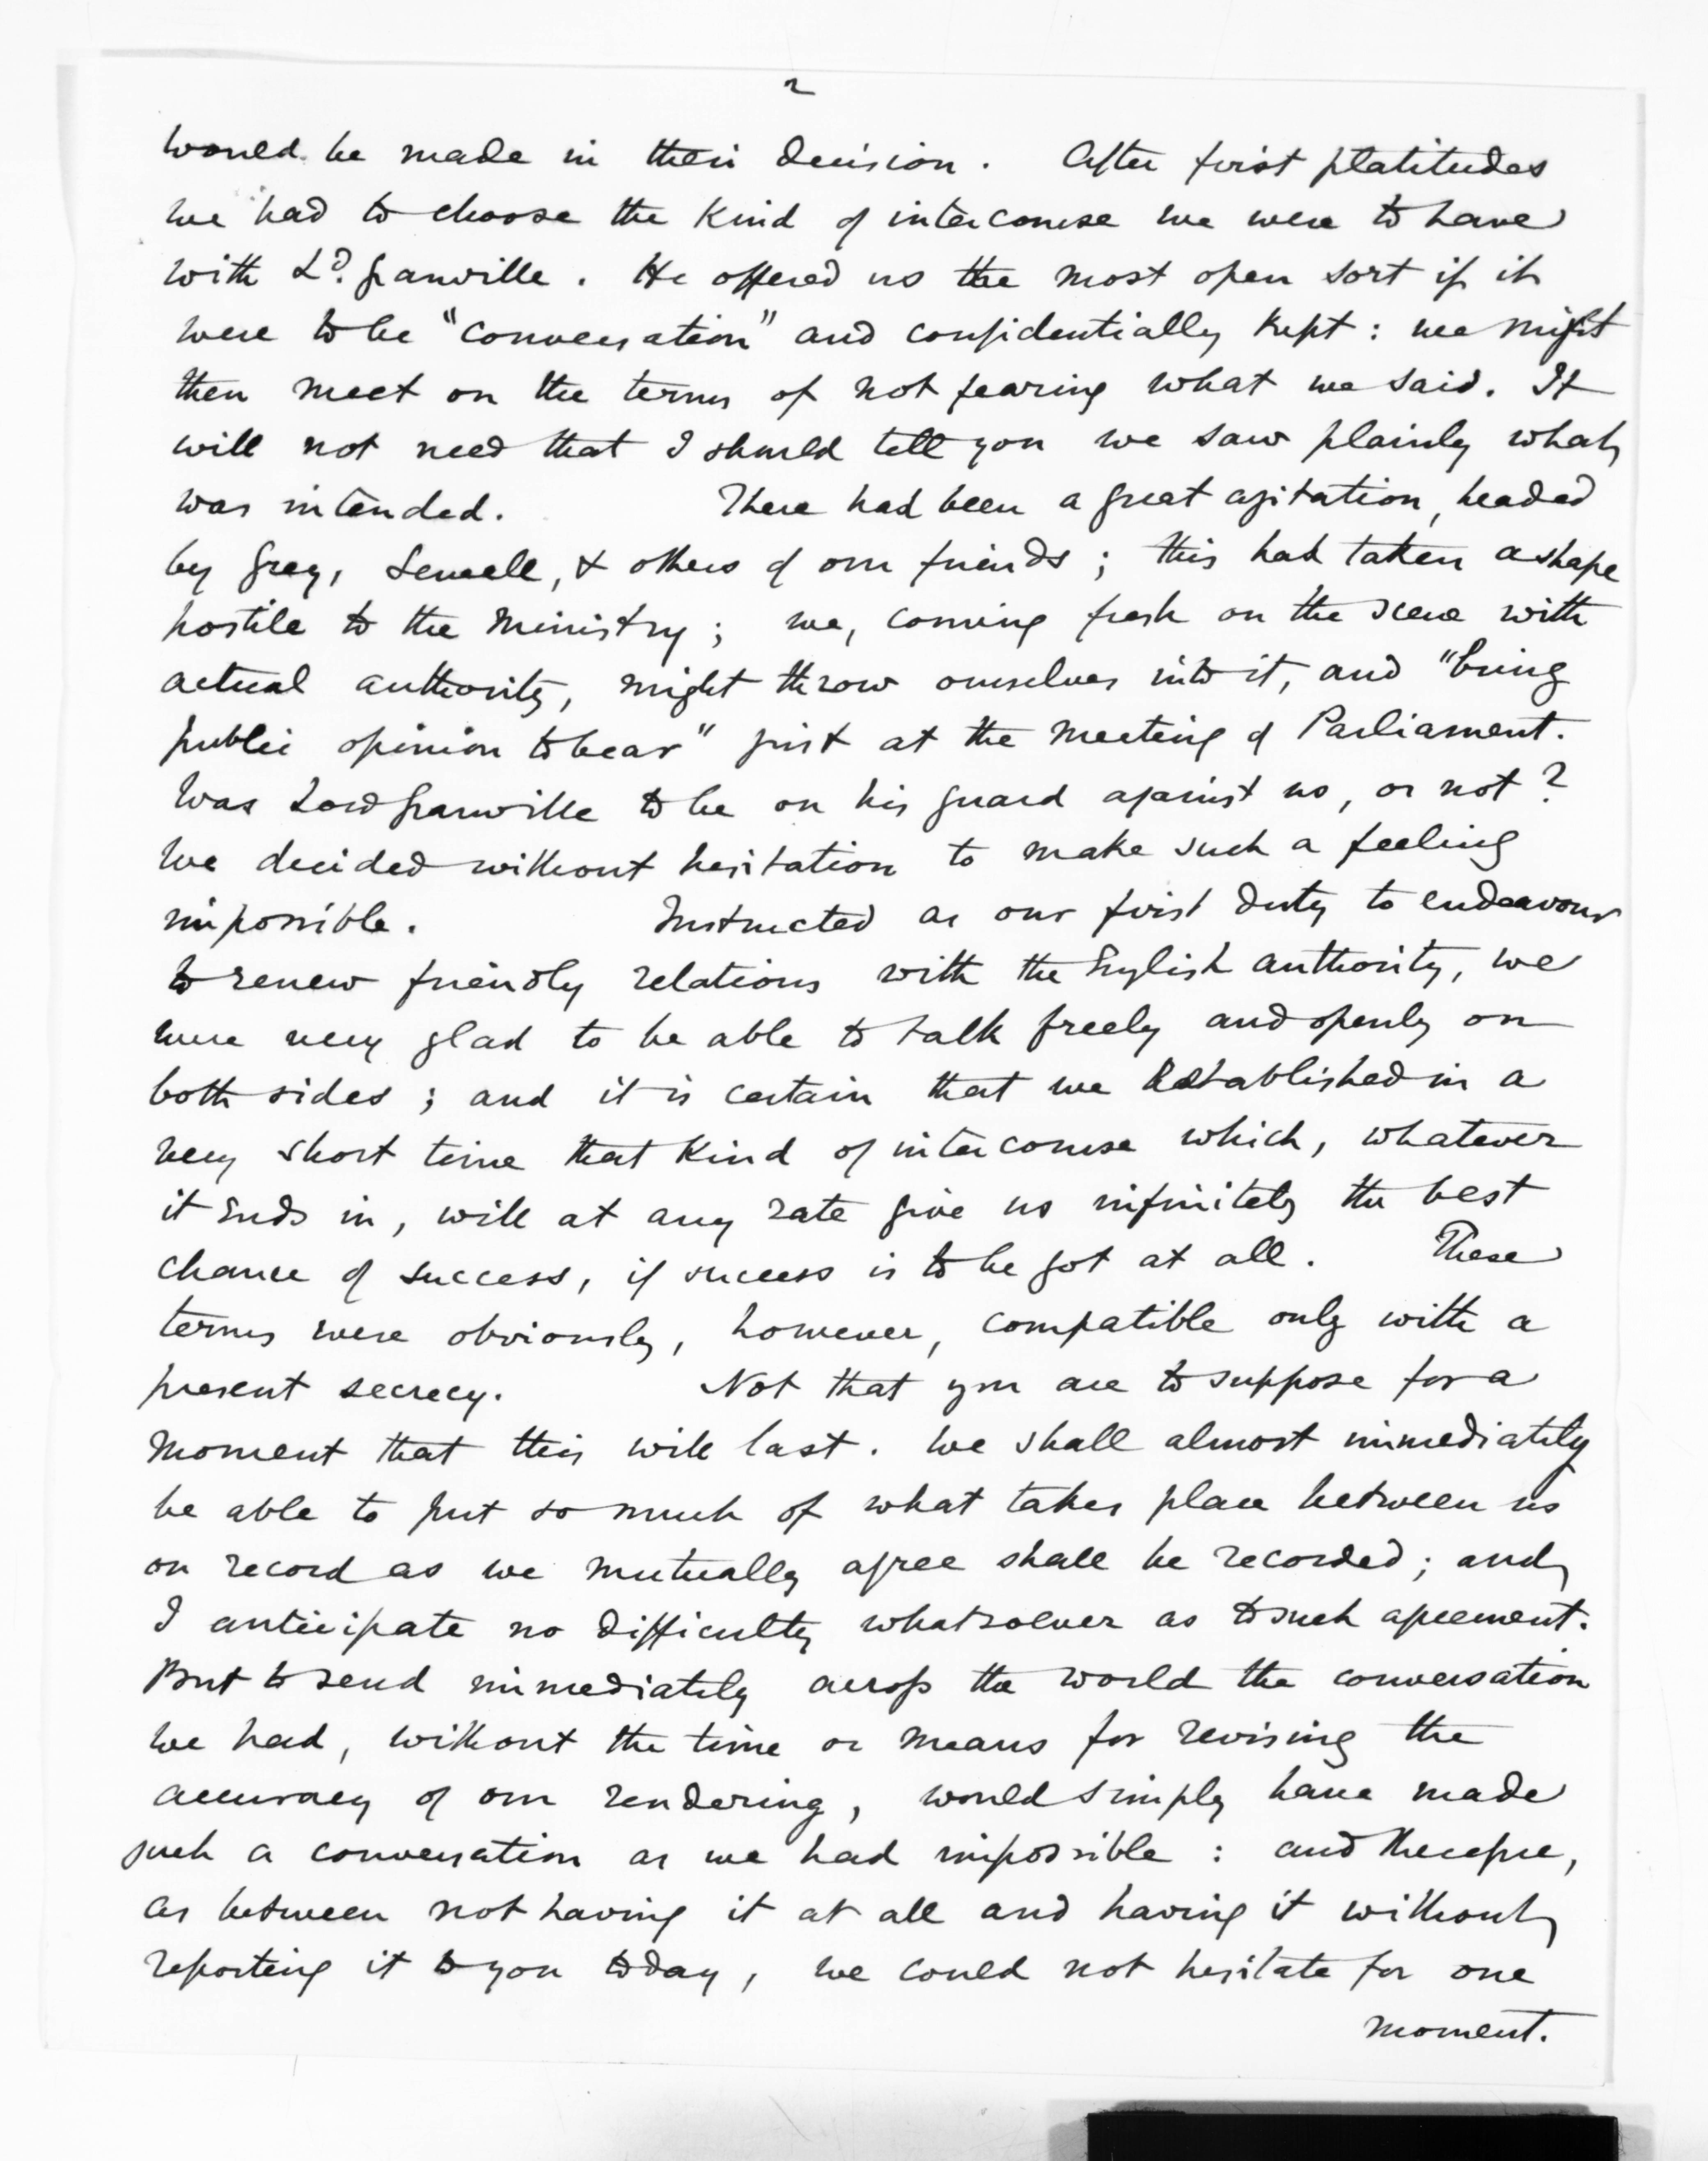 2
would be made in their decision. After first platitudes
we had to choose the kind of intercourse we were to have
with Ld. Granville. He offered us the most open sort if it
were to be "conversation" and confidentially kept: we might
then meet on the terms of not fearing what we said. It
will not need that I should tell you we saw plainly what
was intended. There had been a great agitation, headed
by Grey, Sewell, & others of our friends; this had taken a shape
hostile to the Ministry; we, coming fresh on the scene with
actual authority, might throw ourselves into it, and "bring
public opinion to bear" just at the meeting of Parliament.
Was Lord Granville to be on his guard against us, or not?
We decided without hesitation to make such a feeling
impossible. Instructed as our first duty to endeavour
to renew friendly relations with the English authority, we
were very glad to be able to talk freely and openly on
both sides; and it is certain that we established in a
very short time that kind of intercourse which, whatever
it ends in, will at any rate give us infinitely the best
chance of success, if success is to be got at all. These
terms were obviously, however, compatible only with a
present secrecy. Not that you are to suppose for a
moment that this will last. We shall almost immediately
be able to put so much of what takes place between us
on record as we mutually agree shall be recorded; and
I anticipate no difficulty whatsoever as to such agreement.
But to send immediately across the world the conversation
we had, without the time or means for revising the
accuracy of our rendering, would simply have made
such a conversation as we had impossible: and therefore,
as between not having it at all and having it without
reporting it to you today, we could not hesitate for one
moment.